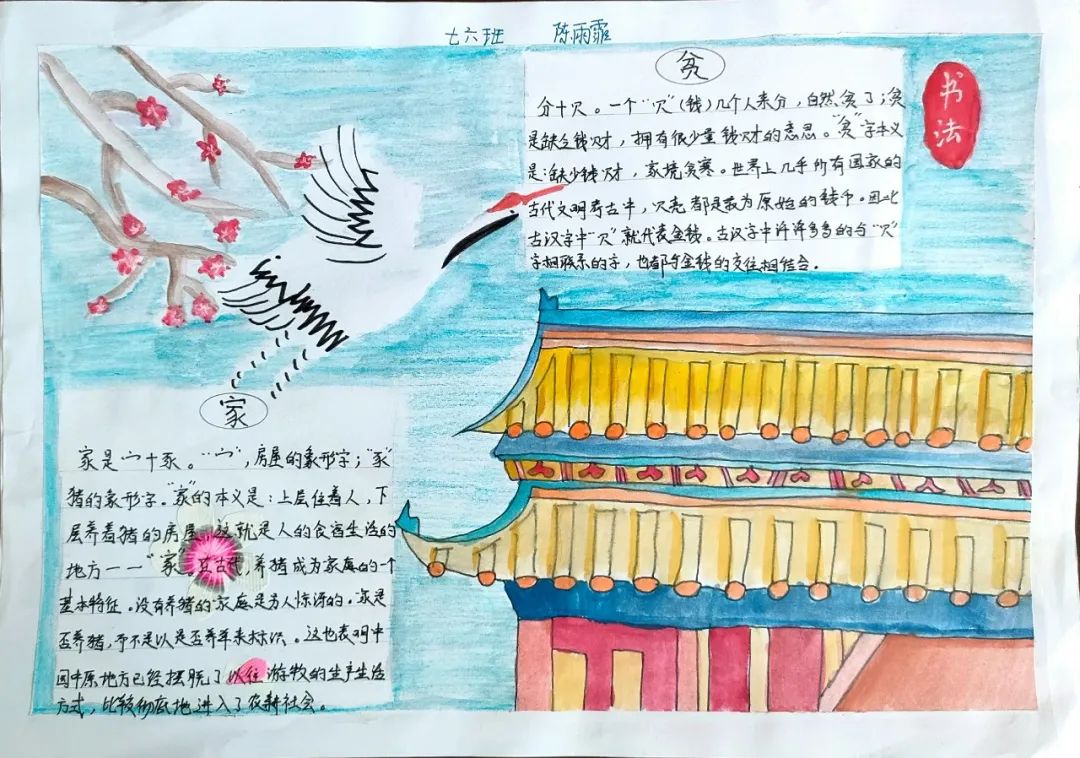 七六班 陈雨霏
贫
分十贝。一个"贝"(钱)几个人来分,自然贫了;贫
是缺乏钱财,拥有很少量钱财的意思。"贫"字本义
是:缺少钱财,家境贫寒。世界上几乎所有国家的
古代文明考古中,贝壳都是最为原始的钱币。因此
古汉字中"贝"就代表金钱。古汉字中许许多多的与"贝"
字相联系的字,也都与金钱的交往相结合。
书
法
家
家是宀十豕。"宀",房屋的象形字;"豕"
猪的象形字。"家"的本义是:上层住着人,下
层养着猪的房屋,这就是人的食宿生活的
地方一一"家"。在古代,养猪成为家庭的一个
基本特征。没有养猪的家庭是为人惊讶的。家是
否养猪,而不是以是否养羊来标识。这也表明中
国中原地方已经摆脱了以往游牧的生产生活
方式,比较彻底地进入了农耕社会。